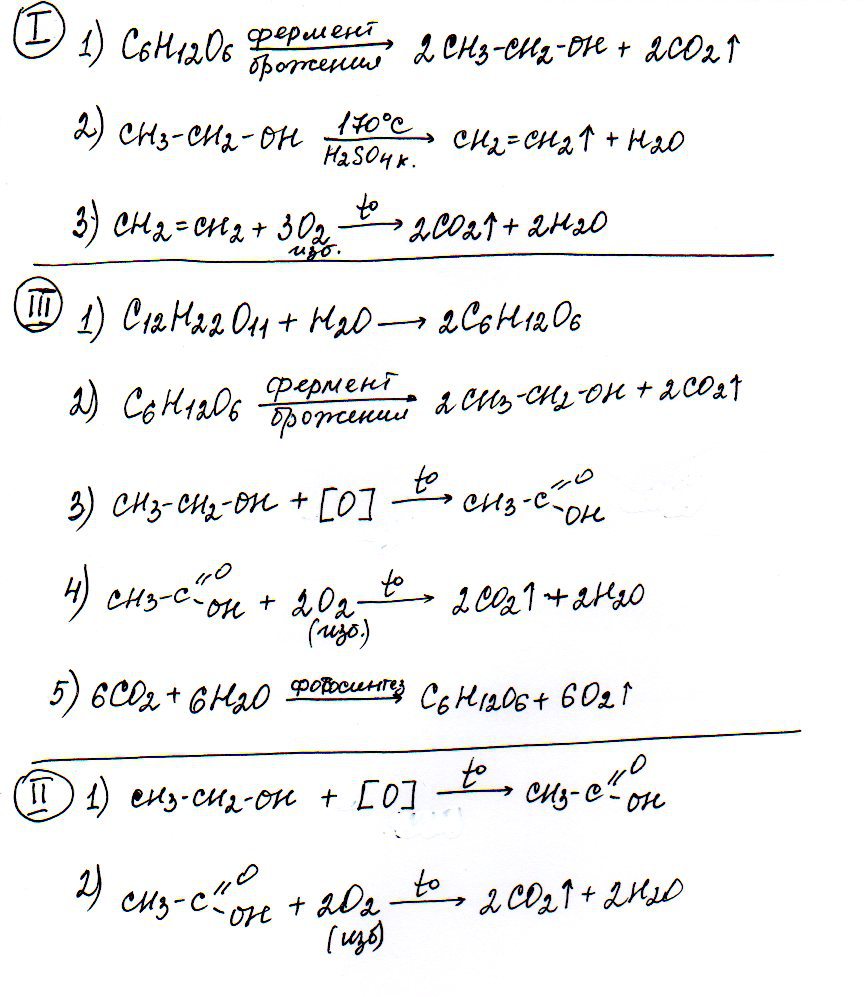 I 1) C6H12O6 фермент брожения → 2CH3-CH2-OH + 2CO2↑
2) CH3-CH2-OH 170°C H2SO4 к. → CH2=CH2↑ + H2O
3) CH2=CH2 + 3O2 изб. t° → 2CO2↑ + 2H2O
III 1) C12H22O11 + H2O → 2C6H12O6
2) C6H12O6 фермент брожения → 2CH3-CH2-OH + 2CO2↑
3) CH3-CH2-OH + [O] t° → CH3-C=O-OH
4) CH3-C=O-OH + 2O2 (изб.) t° → 2CO2↑ + 2H2O
5) 6CO2 + 6H2O фотосинтез → C6H12O6 + 6O2↑
II 1) CH3-CH2-OH + [O] t° → CH3-C=O-OH
2) CH3-C=O-OH + 2O2 (изб) t° → 2CO2↑ + 2H2O